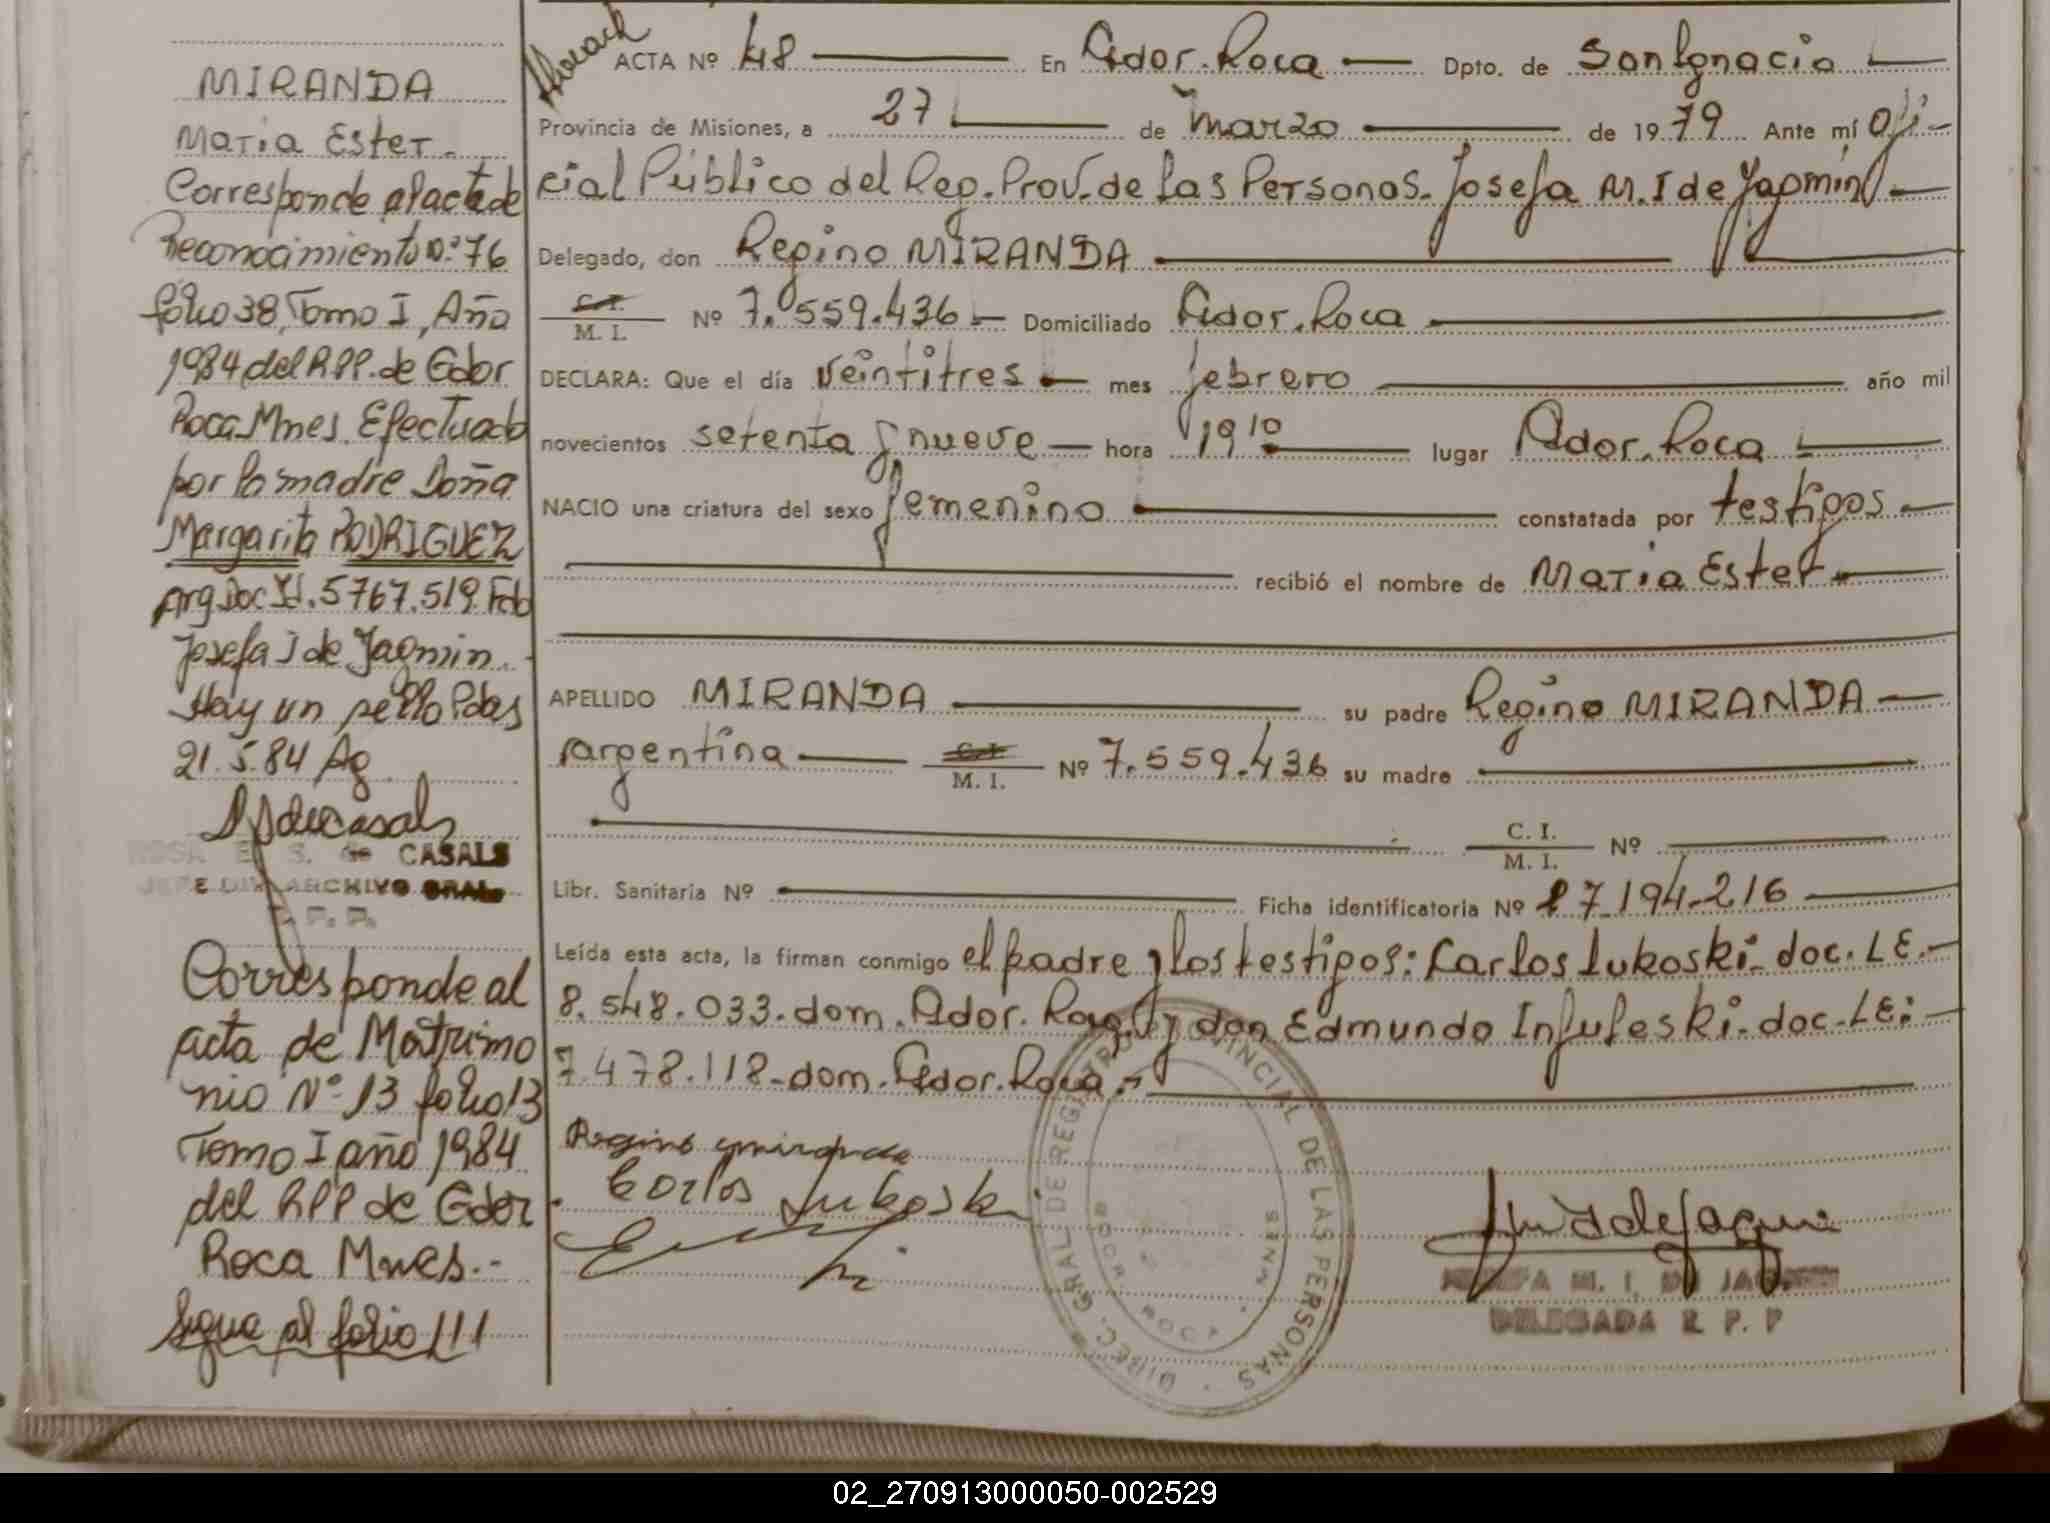 MIRANDA
Maria Ester.
Corresponde al acta de
Reconocimiento Nº 76
folio 38, Tomo I, Año
1984 del RPP. de Gdor
Roca Mnes. Efectuado
por la madre Doña
Margarita RODRIGUEZ
Arg Doc Id. 5767.519 Fdo
Josefa I de Jagmin.
Hay un sello Pdas
21.5.84 Ag
CASALS
JEFE DIV. ARCHIVO GRAL.
R. P. P.
Corresponde al
acta de Matrimo
nio Nº 13 folio 13
Tomo I año 1984
del RPP de Gdor
Roca Mnes.-
Sigue al folio 111
ACTA Nº 48 En Gdor. Roca Dpto. de San Ignacio
Provincia de Misiones, a 27 de marzo de 1979 Ante mí ofi-
cial Público del Reg. Prov. de las Personas. Josefa M. I de Jagmin
Delegado, don Regino MIRANDA
C. I.
M. I. Nº 7.559.436 Domiciliado Gdor. Roca
DECLARA: Que el día veintitres mes febrero año mil
novecientos setenta y nueve hora 19 10 lugar Gdor. Roca
NACIO una criatura del sexo femenino constatada por testigos
recibió el nombre de Maria Ester
APELLIDO MIRANDA su padre Regino MIRANDA
argentina C. I.
M. I. Nº 7.559.436 su madre
C. I.
M. I. Nº
Libr. Sanitaria Nº Ficha identificatoria Nº 27.194.216
Leída esta acta, la firman conmigo el padre y los testigos: Carlos Lukoski. doc. LE.
8.548.033. dom. Gdor. Roca. y don Edmundo Infuleski. doc. LE:
7.478.118. dom. Gdor. Roca.-
Regino miranda
Carlos Lukoski
DIREC. GRAL DE REGISTRO PROVINCIAL DE LAS PERSONAS
GDOR. ROCA MNES
JOSEFA M. I. DE JAGMIN
DELEGADA R. P. P
02_270913000050-002529